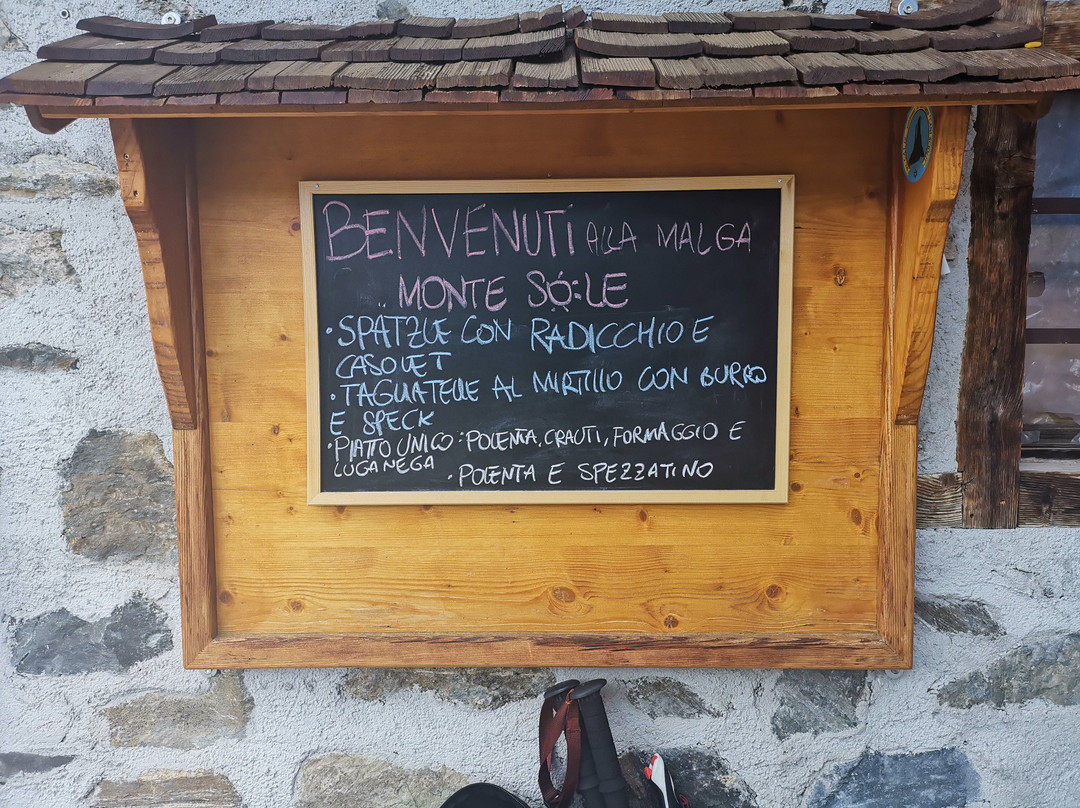 BENVENUTI ALLA MALGA
MONTE SOLE
• SPÄTZLE CON RADICCHIO E
CASOLET
• TAGLIATELLE AL MIRTILLO CON BURRO
E SPECK
• PIATTO UNICO: POLENTA, CRAUTI, FORMAGGIO E
LUGANEGA
• POLENTA E SPEZZATINO